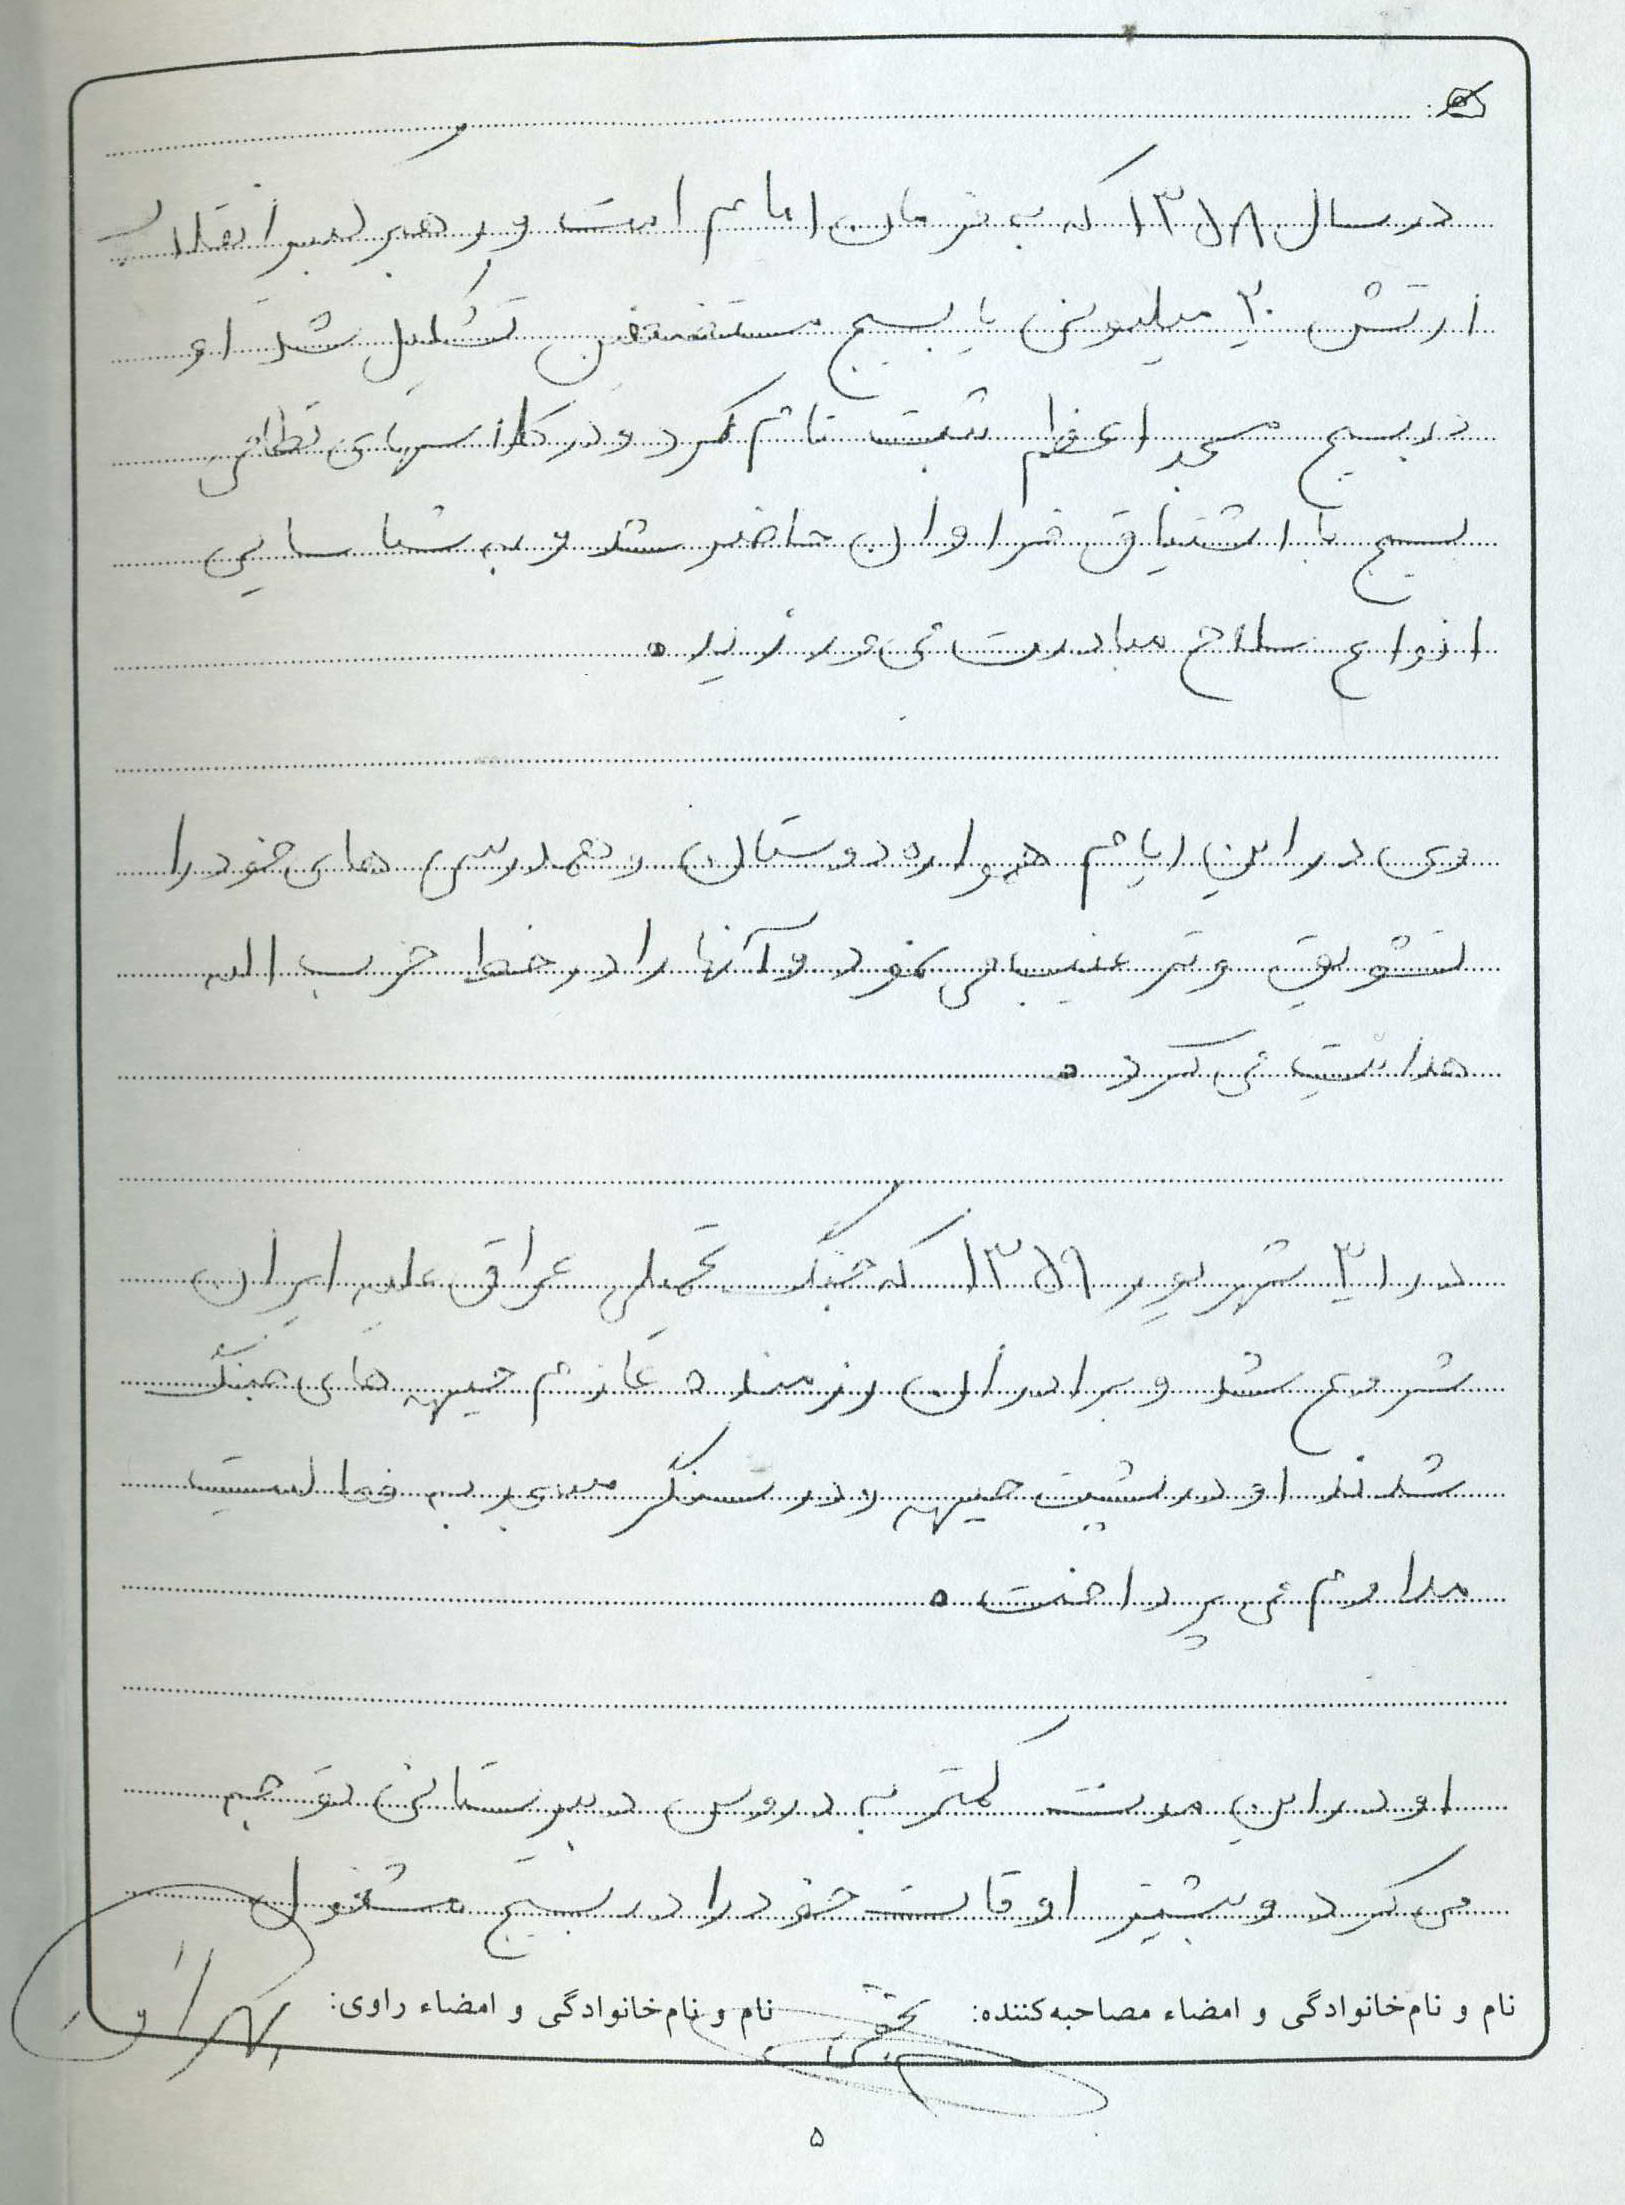 در سال ۱۳۵۸ که به فرمان امام امت و رهبر کبیر انقلاب
ارتش ۲۰ میلیونی یا بسیج مستضعفین تشکیل شد او
در بسیج مسجد اعظم ثبت نام کرد و در کلاسهای نظامی
بسیج با اشتیاق فراوان حاضر شد و به شناسایی
انواع سلاح مبادرت می ورزید.
وی در این ایام همواره دوستان و همدرسی های خود را
تشویق و ترغیب می نمود و آنها را در خط حزب الله
هدایت می کرد.
در ۳۱ شهریور ۱۳۵۹ که جنگ تحمیلی عراق علیه ایران
شروع شد و برادران رزمنده عازم جبهه های جنگ
شدند او در پشت جبهه و در سنگر به فعالیت
مداوم می پرداخت.
او در این مدت کمتر به دروس دبیرستانی توجه
می کرد و بیشتر اوقات خود را در بسیج مشغول
نام و نام‌خانوادگی و امضاء مصاحبه‌کننده: نام و نام‌خانوادگی و امضاء راوی:
۵